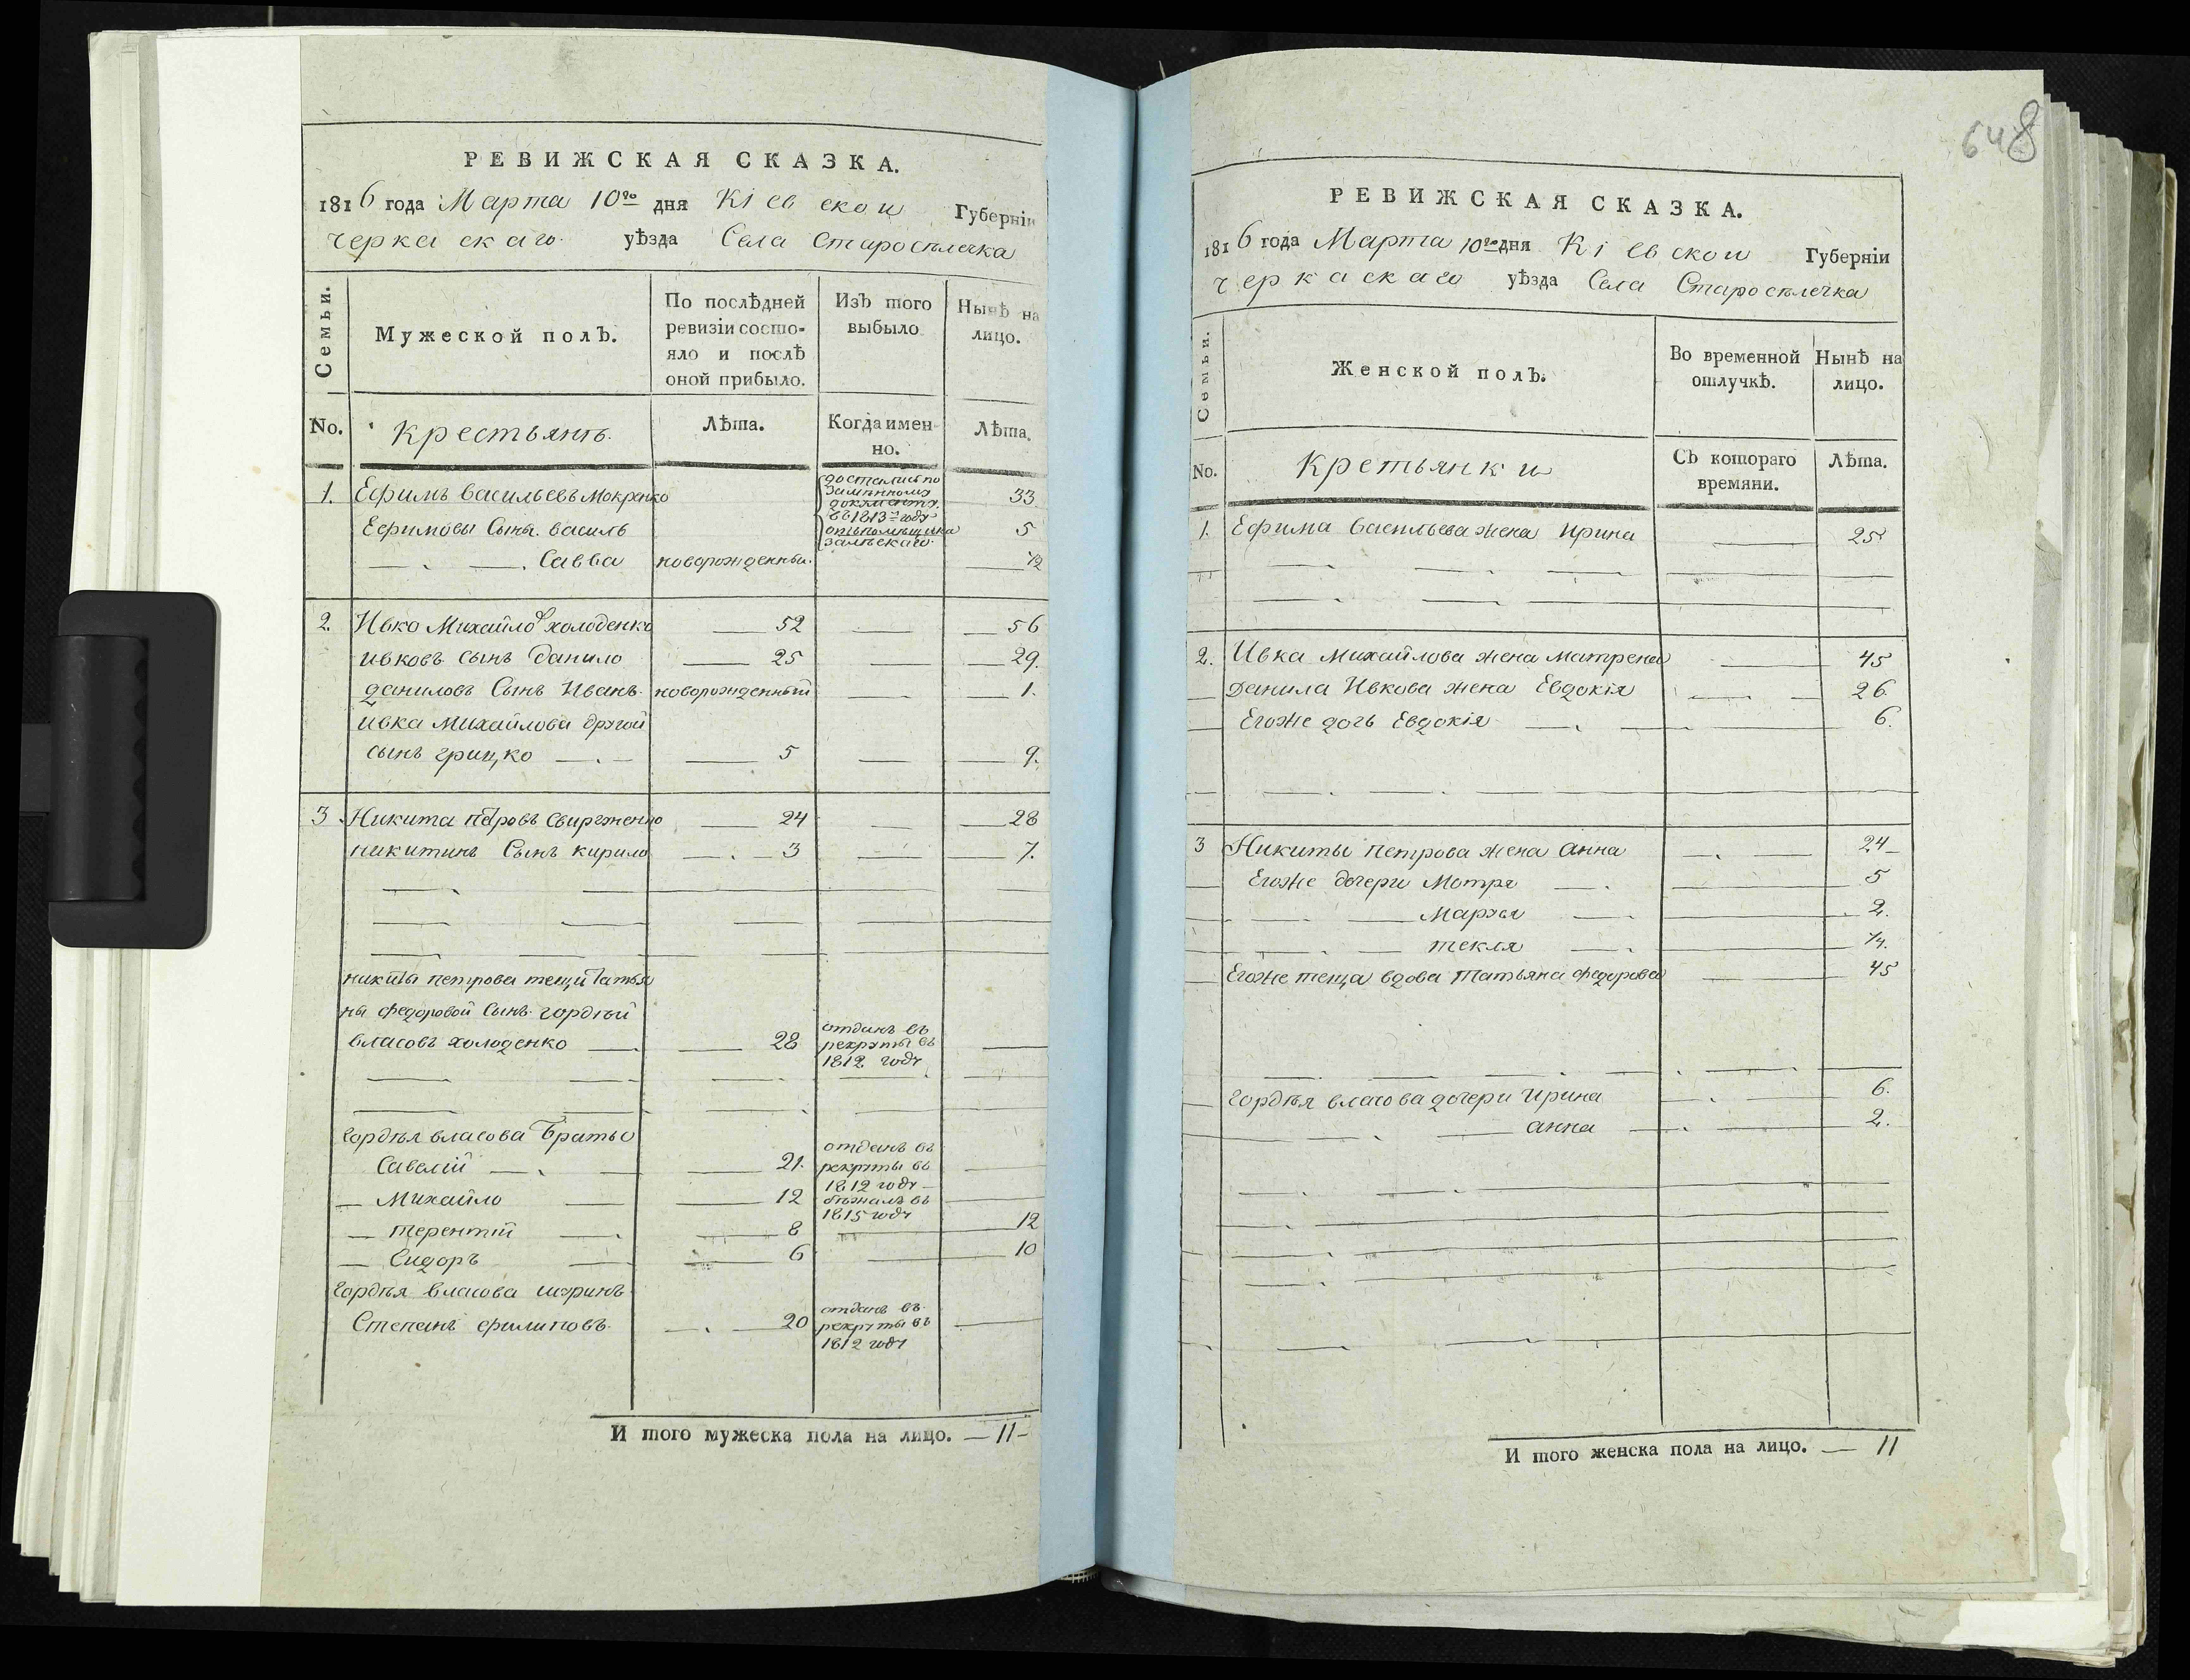 РЕВИЖСКАЯ СКАЗКА.
1816 года Марта 10го дня Кіевской Губерніи
Черкаскаго уѣзда Села Старосѣлечка
Семьи. Мужеской полЪ. По послѣдней ревизіи состояло и послѣ оной прибыло. ИзЪ того выбыло НынѢ на лицо.
No. Крестьянъ. ЛѢта. Когда именно. ЛѢта.
1. Ефимъ Васильевъ Мокренко достались по 33.
Ефимовы Сыны. Василь въ 1813м году 5
— . — . Савва новорожденны. ½
2. Ивко Михайлов холоденко — 52 — — 56
ивковъ сынъ Данило — 25 — — 29.
даниловъ Сынъ Иванъ новорожденный — — 1.
ивка Михайлова другой
сынъ грицко — . — — 5 — — 9.
3. Никита Петровъ Свирженко — 24 — — 28
никитинъ Сынъ кирило — . — 3 — — 7.
никиты петрова тещи Татья
ны федоровой Сынъ гордѣй
власовъ холоденко — — 28 отданъ въ рекруты въ 1812 году —
гордѣя власова братья
Савелій — . — — 21. отданъ въ рекруты въ 1812 году —
— Михайло — — 12 бѣжалъ въ 1815 году —
— терентій — . — 8 — — 12
— Сидоръ — — 6 — — 10
гордѣя власова шуринъ
Степанъ филиповъ — . — 20 отданъ въ рекруты въ 1812 году —
И того мужеска пола на лицо. — 11 —
648
РЕВИЖСКАЯ СКАЗКА.
1816 года Марта 10го дня Кіевской Губерніи
Черкаскаго уѣзда Села Старосѣлечка
Семьи. Женской полЪ. Во временной отлучкѢ. НынѢ на лицо.
No. Кретьянки СЪ котораго времяни. ЛѢта.
1. Ефима Васильева жена Ирина — 25
2. Ивка Михайлова жена Матрена — 45
Данила Ивкова жена Евдокія — . — 26.
Егоже дочь Евдокія — . — 6.
3 Никиты петрова жена анна — . — 24 —
Егоже дочери Мотря — . — 5
— . — Марья — . — 2.
— . — текля — . — ¼.
Егоже теща вдова Татьяна федорова — 45
гордѣя власова дочери Ирина — . — 6.
— . — анна — . — 2.
И того женска пола на лицо. — 11